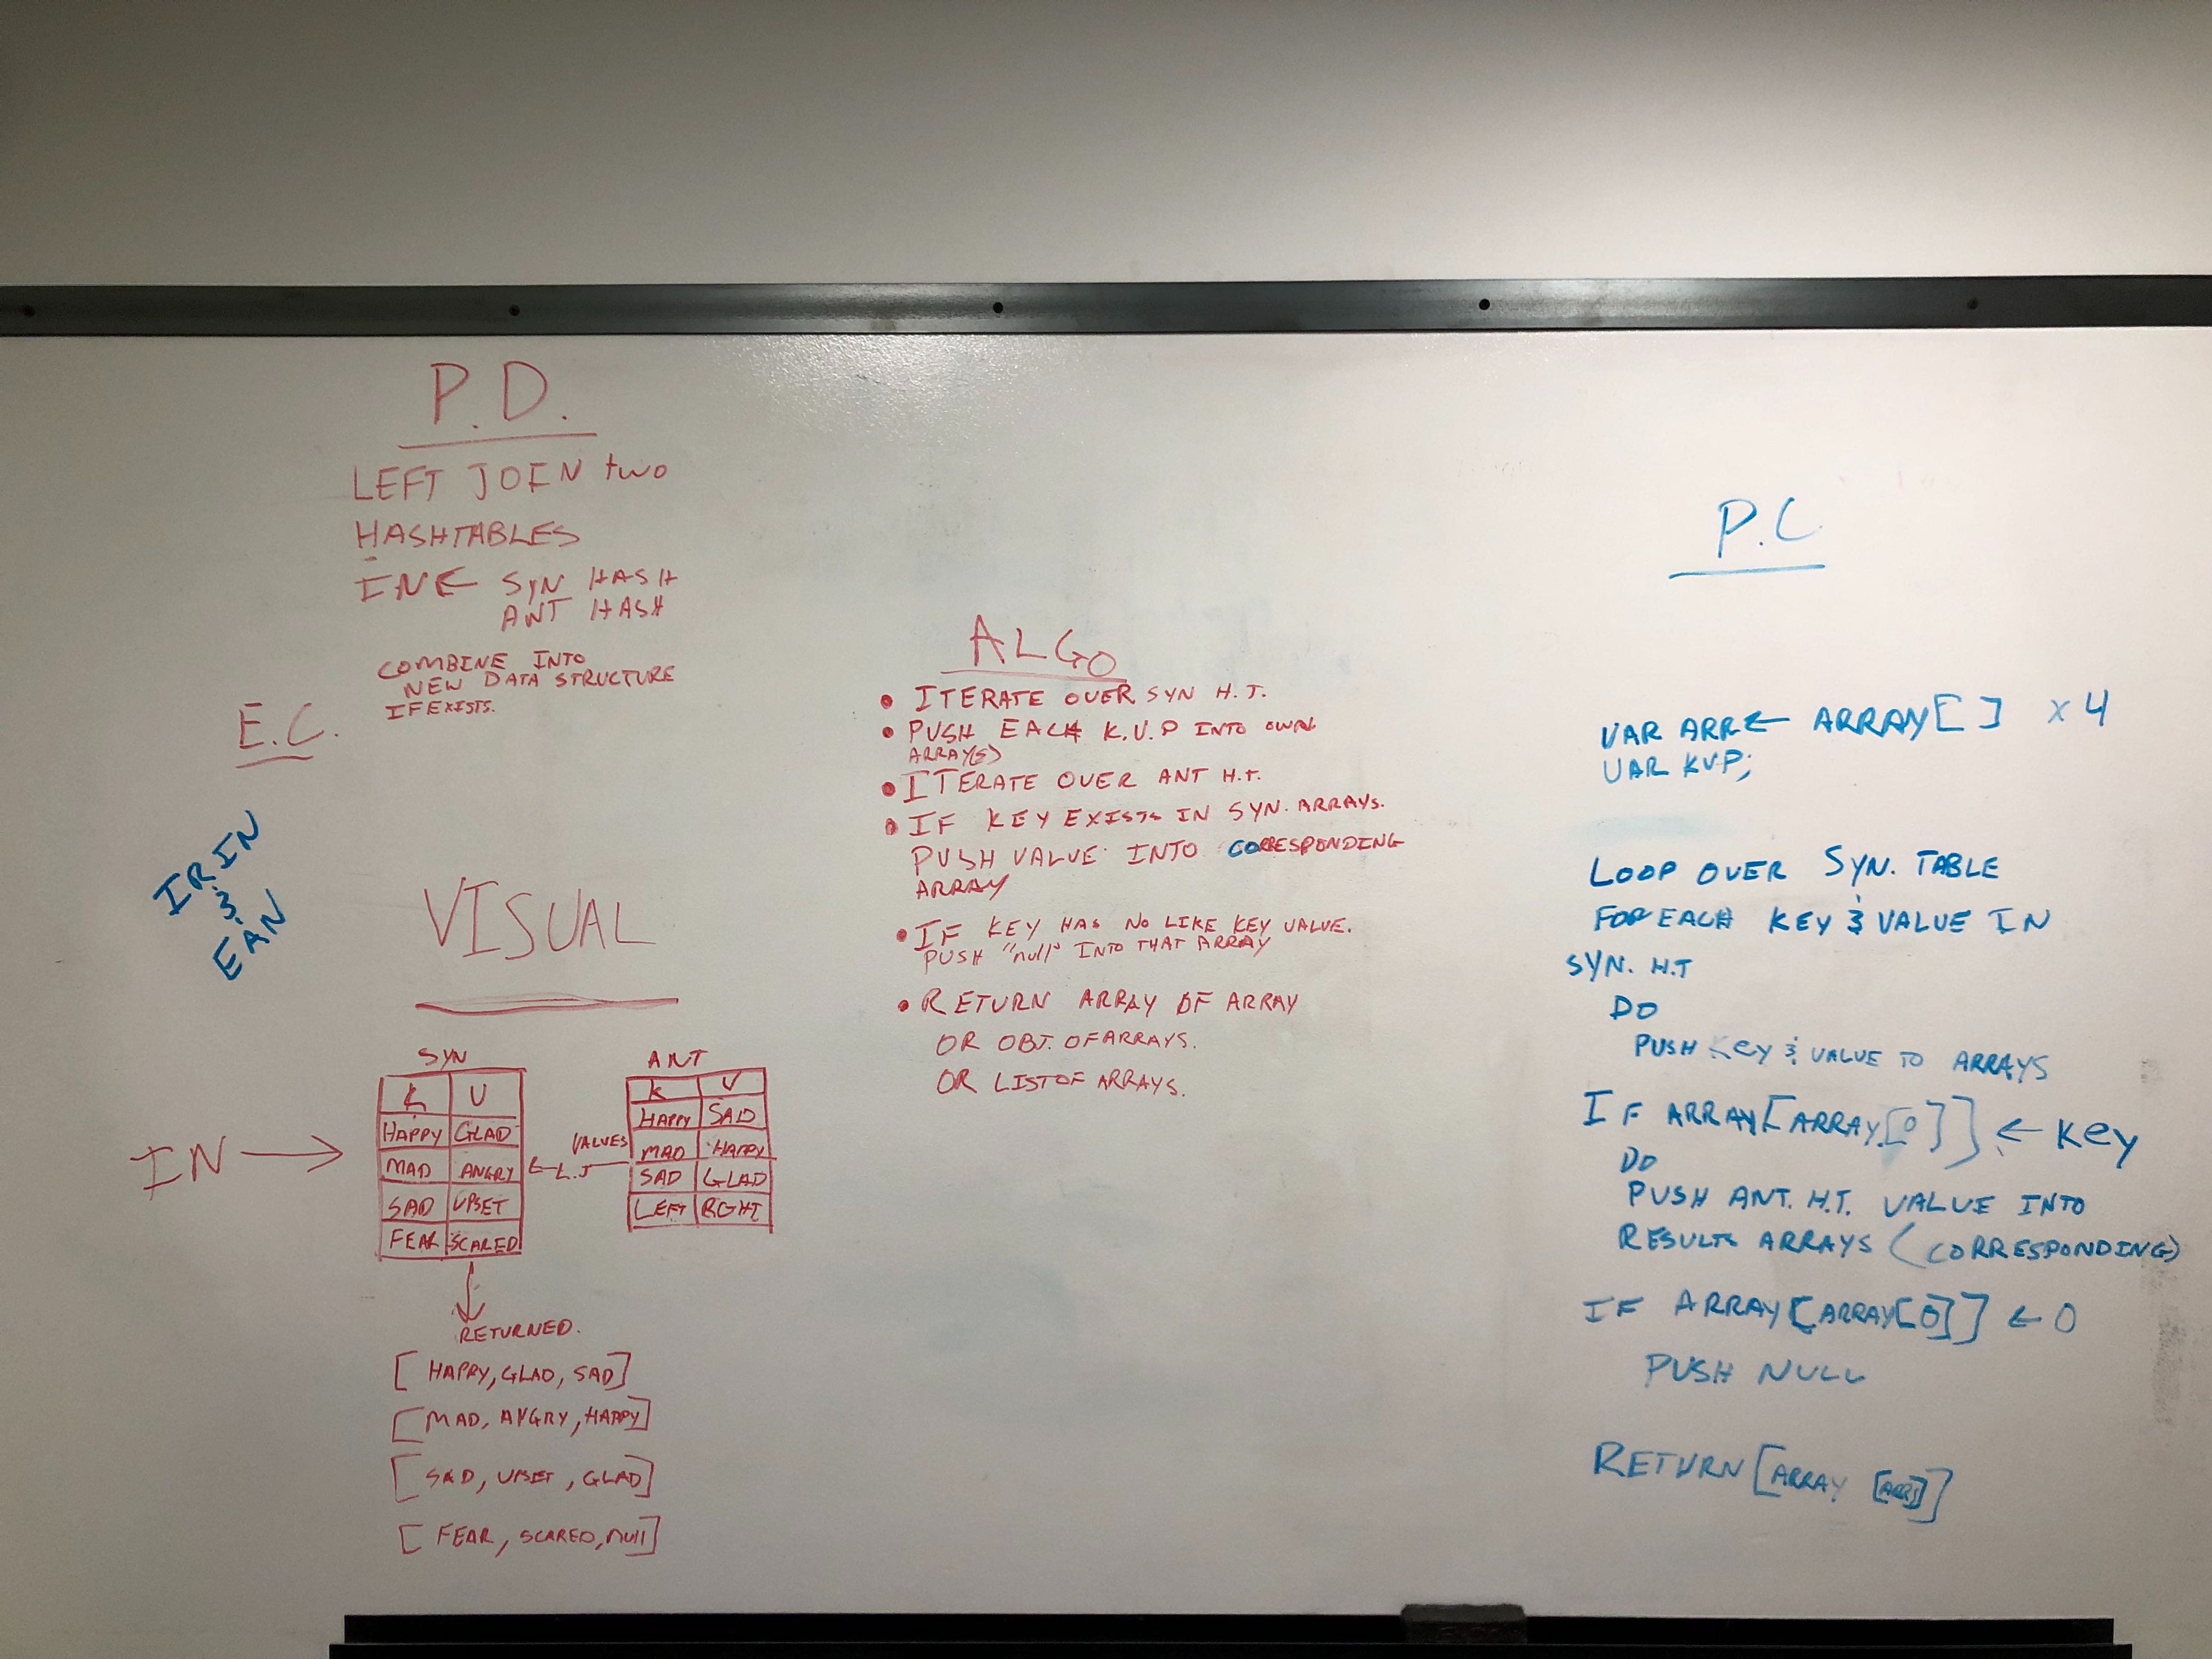 P.D.
LEFT JOIN two
HASHTABLES
IN ← SYN HASH
ANT HASH
COMBINE INTO
NEW DATA STRUCTURE
IF EXISTS.
E.C.
IRIN
&
EAN
VISUAL
SYN
K V
HAPPY GLAD
MAD ANGRY
SAD UPSET
FEAR SCARED
IN →
VALUES
← L.J
ANT
K V
HAPPY SAD
MAD HAPPY
SAD GLAD
LEFT RGHT
RETURNED.
[ HAPPY, GLAD, SAD]
[ MAD, ANGRY, HAPPY]
[ SAD, UPSET, GLAD]
[ FEAR, SCARED, null]
ALGO
• ITERATE OVER SYN H.T.
• PUSH EACH K.V.P INTO OWN
ARRAY(S)
• ITERATE OVER ANT H.T.
• IF KEY EXISTS IN SYN. ARRAYS.
PUSH VALUE INTO CORRESPONDING
ARRAY
• IF KEY HAS NO LIKE KEY VALUE.
PUSH "null" INTO THAT ARRAY
• RETURN ARRAY OF ARRAY
OR OBJ. OF ARRAYS.
OR LIST OF ARRAYS.
P.C
VAR ARR ← ARRAY[ ] x 4
VAR KVP;
LOOP OVER SYN. TABLE
FOR EACH KEY & VALUE IN
SYN. H.T
DO
PUSH KEY & VALUE TO ARRAYS
IF ARRAY[ARRAY[0]] ← KEY
DO
PUSH ANT. H.T. VALUE INTO
RESULTS ARRAYS (CORRESPONDING)
IF ARRAY[ARRAY[0]] ← 0
PUSH NULL
RETURN [ARRAY [ARRS]]